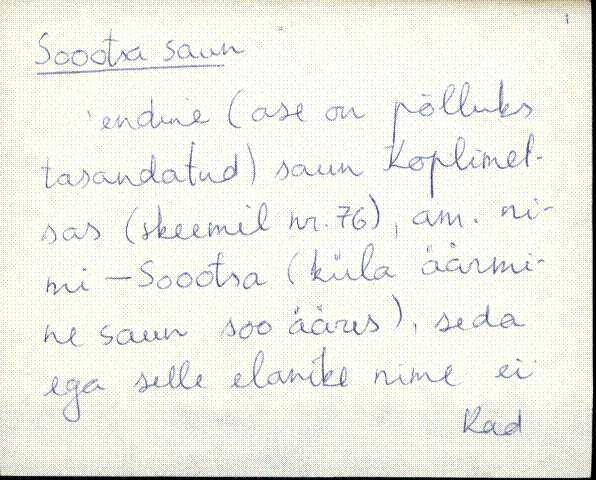 Soootsa saun
endine (ase on põlluks
tasandatud) saun Koplimet-
sas (skeemil nr. 76), am. ni-
mi – Soootsa (küla äärmi-
ne saun soo ääres), seda
ega selle elanike nime ei
Kad